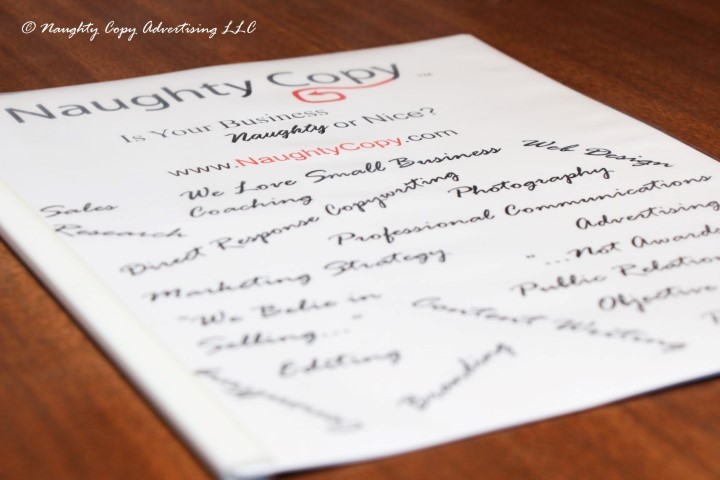 © Naughty Copy Advertising LLC
Naughty Copy ™
Is Your Business
Naughty or Nice?
www.NaughtyCopy.com
We Love Small Business
Web Design
Sales
Coaching
Photography
Research
Direct Response Copywriting
Professional Communications
Advertising
Marketing Strategy
"...Not Awards
"We Belie in
Public Relation
Selling..."
Objective
Content Writing
Editing
Branding